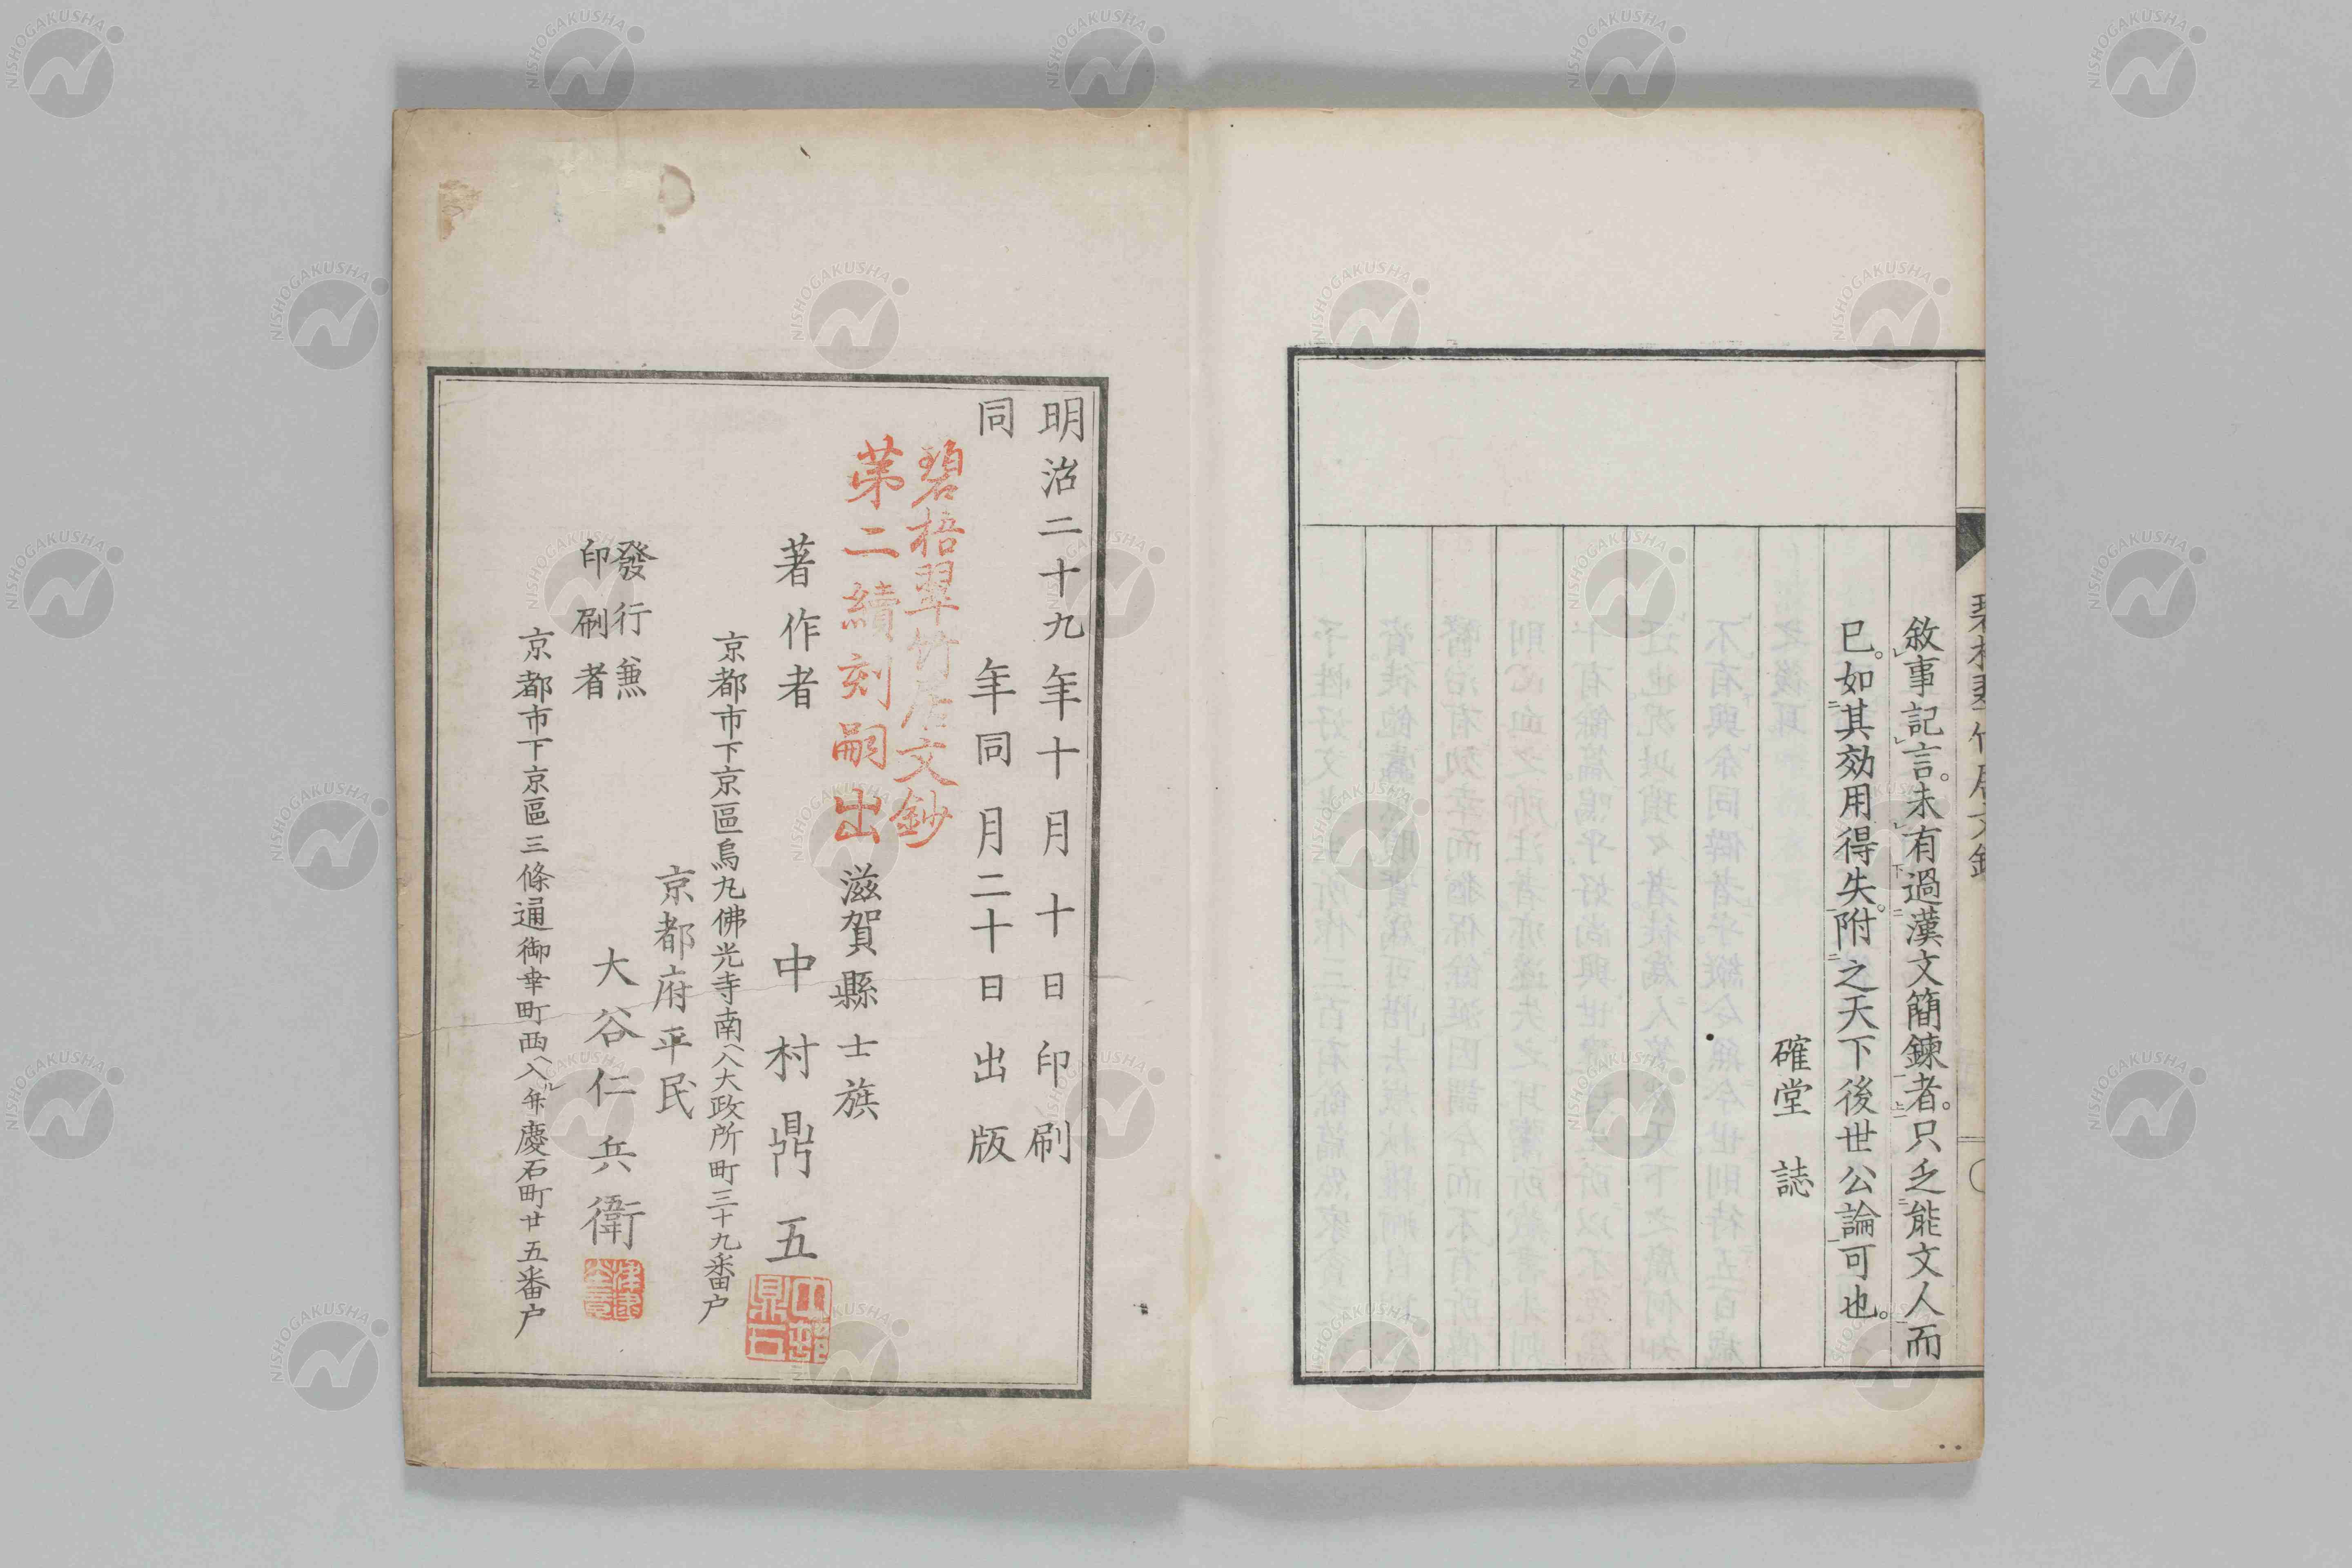 敘事記言。未有過漢文簡鍊者。只乏能文人而
已。如其效用得失。附之天下後世公論可也。
確堂 誌
明治二十九年十月十日印刷
同 年同月二十日出版
碧梧翠竹居文鈔
第二續刻嗣出
滋賀縣士族
著作者 中村鼎五
京都市下京區烏丸佛光寺南入大政所町三十九番戶
京都府平民
發行兼
印刷者 大谷仁兵衛
京都市下京區三條通御幸町西入 慶石町廿五番戶
NISHOGAKUSHA